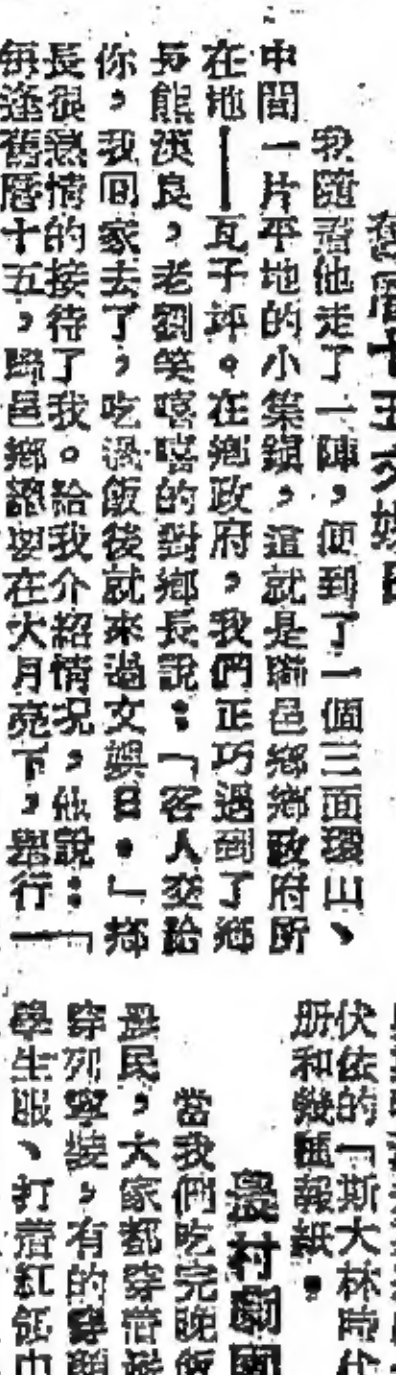 舊曆十五文娛日
我隨着他走了一陣,便到了一個三面環山、
中間一片平地的小集鎮,這就是聯邑鄉鄉政府所
在地——瓦子坪。在鄉政府,我們正巧遇到了鄉
長熊漢良,老劉笑嘻嘻的對鄉長說:「客人交給
你,我回家去了,吃過飯後就來過文娛日。」鄉
長很熱情的接待了我。給我介紹情况,他說:「
每逢舊曆十五,聯邑鄉都要在大月亮下,舉行一
伏依的「斯大林時代
册和幾種報紙。
農村劇團
當我們吃完晚飯
農民,大家都穿着
穿列寧裝,有的穿
學生服、打着紅領巾